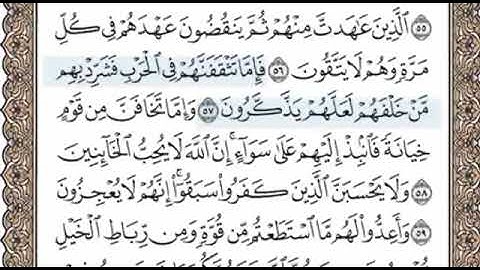 ٥٥ ٱلَّذِينَ عَٰهَدتَّ مِنْهُمْ ثُمَّ يَنقُضُونَ عَهْدَهُمْ فِى كُلِّ
مَرَّةٍ وَهُمْ لَا يَتَّقُونَ ٥٦ فَإِمَّا تَثْقَفَنَّهُمْ فِى ٱلْحَرْبِ فَشَرِّدْ بِهِم
مَّنْ خَلْفَهُمْ لَعَلَّهُمْ يَذَّكَّرُونَ ٥٧ وَإِمَّا تَخَافَنَّ مِن قَوْمٍ
خِيَانَةً فَٱنۢبِذْ إِلَيْهِمْ عَلَىٰ سَوَآءٍ ۚ إِنَّ ٱللَّهَ لَا يُحِبُّ ٱلْخَآئِنِينَ
٥٨ وَلَا يَحْسَبَنَّ ٱلَّذِينَ كَفَرُوا۟ سَبَقُوٓا۟ ۚ إِنَّهُمْ لَا يُعْجِزُونَ
٥٩ وَأَعِدُّوا۟ لَهُم مَّا ٱسْتَطَعْتُم مِّن قُوَّةٍ وَمِن رِّبَاطِ ٱلْخَيْلِ